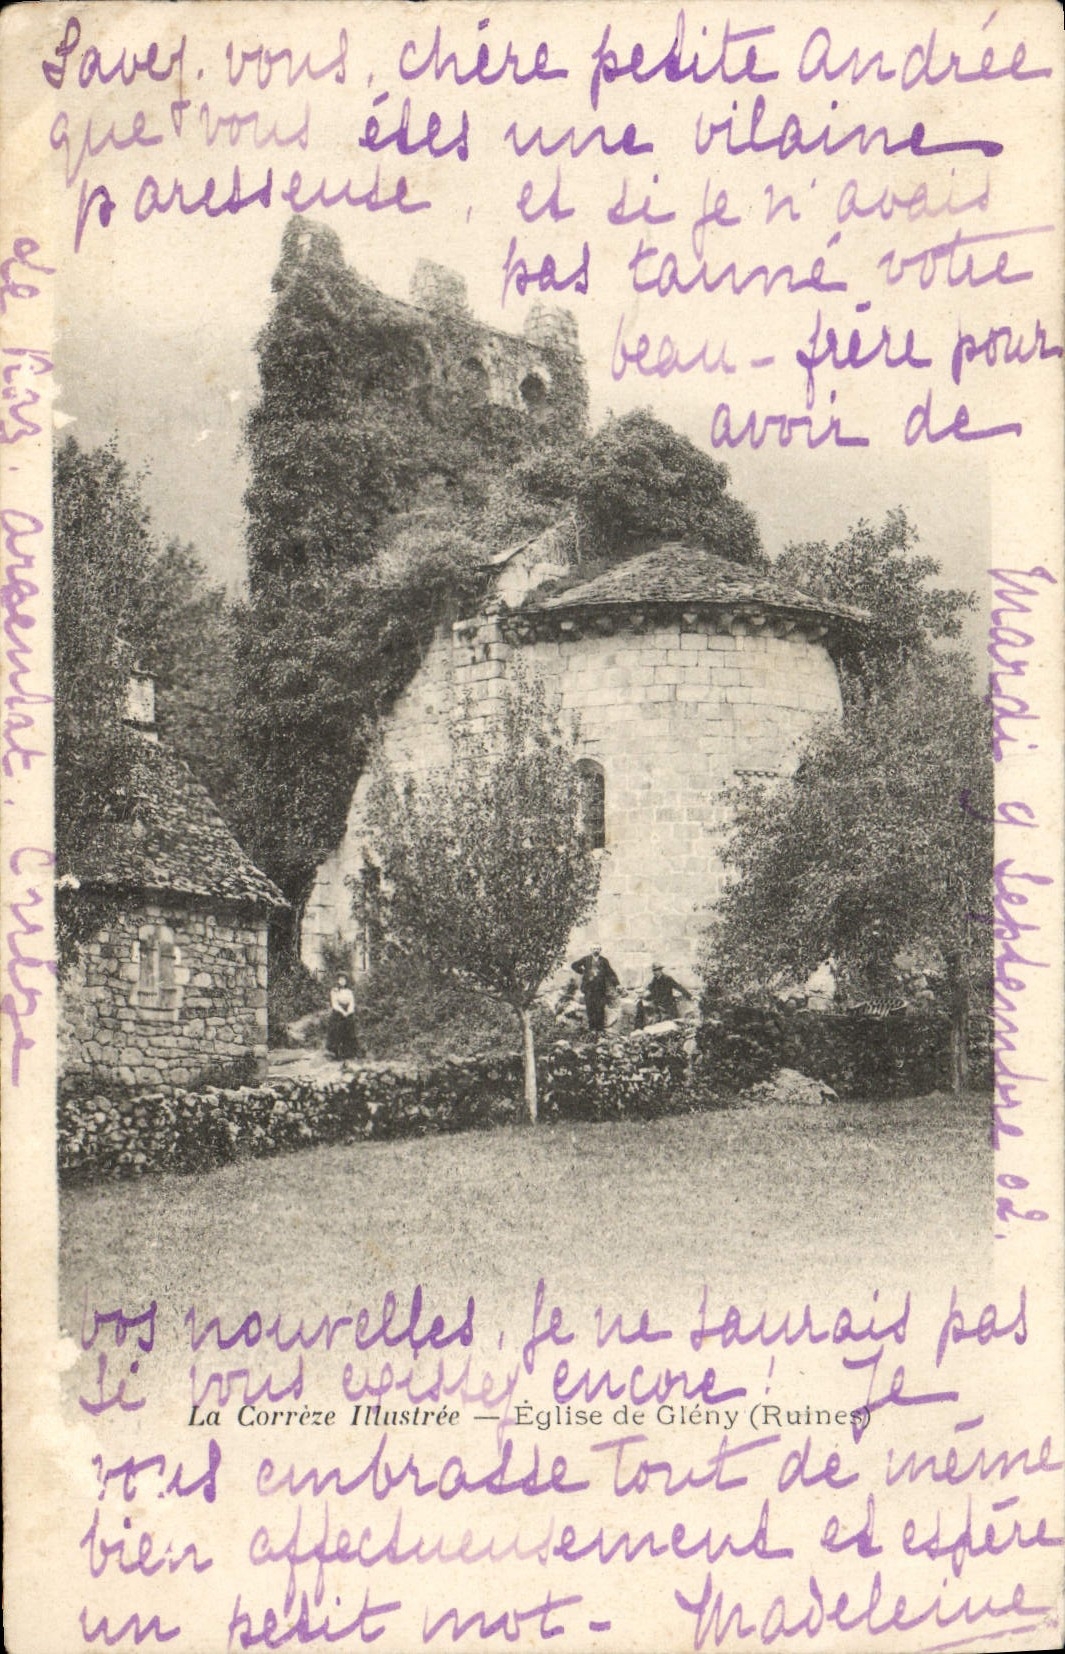 Savez-vous, chère petite Andrée
que vous étes une vilaine
paresseuse, et si je n'avais
pas tanné votre
beau-frère pour
avoir de
vos nouvelles, je ne saurais pas
si vous existez encore! Je
La Corrèze Illustrée — Église de Glény (Ruines)
vous embrasse tout de même
bien affectueusement et espère
un petit mot - Madeleine
Mardi 9 Septembre 02.
Argentat. Corrèze